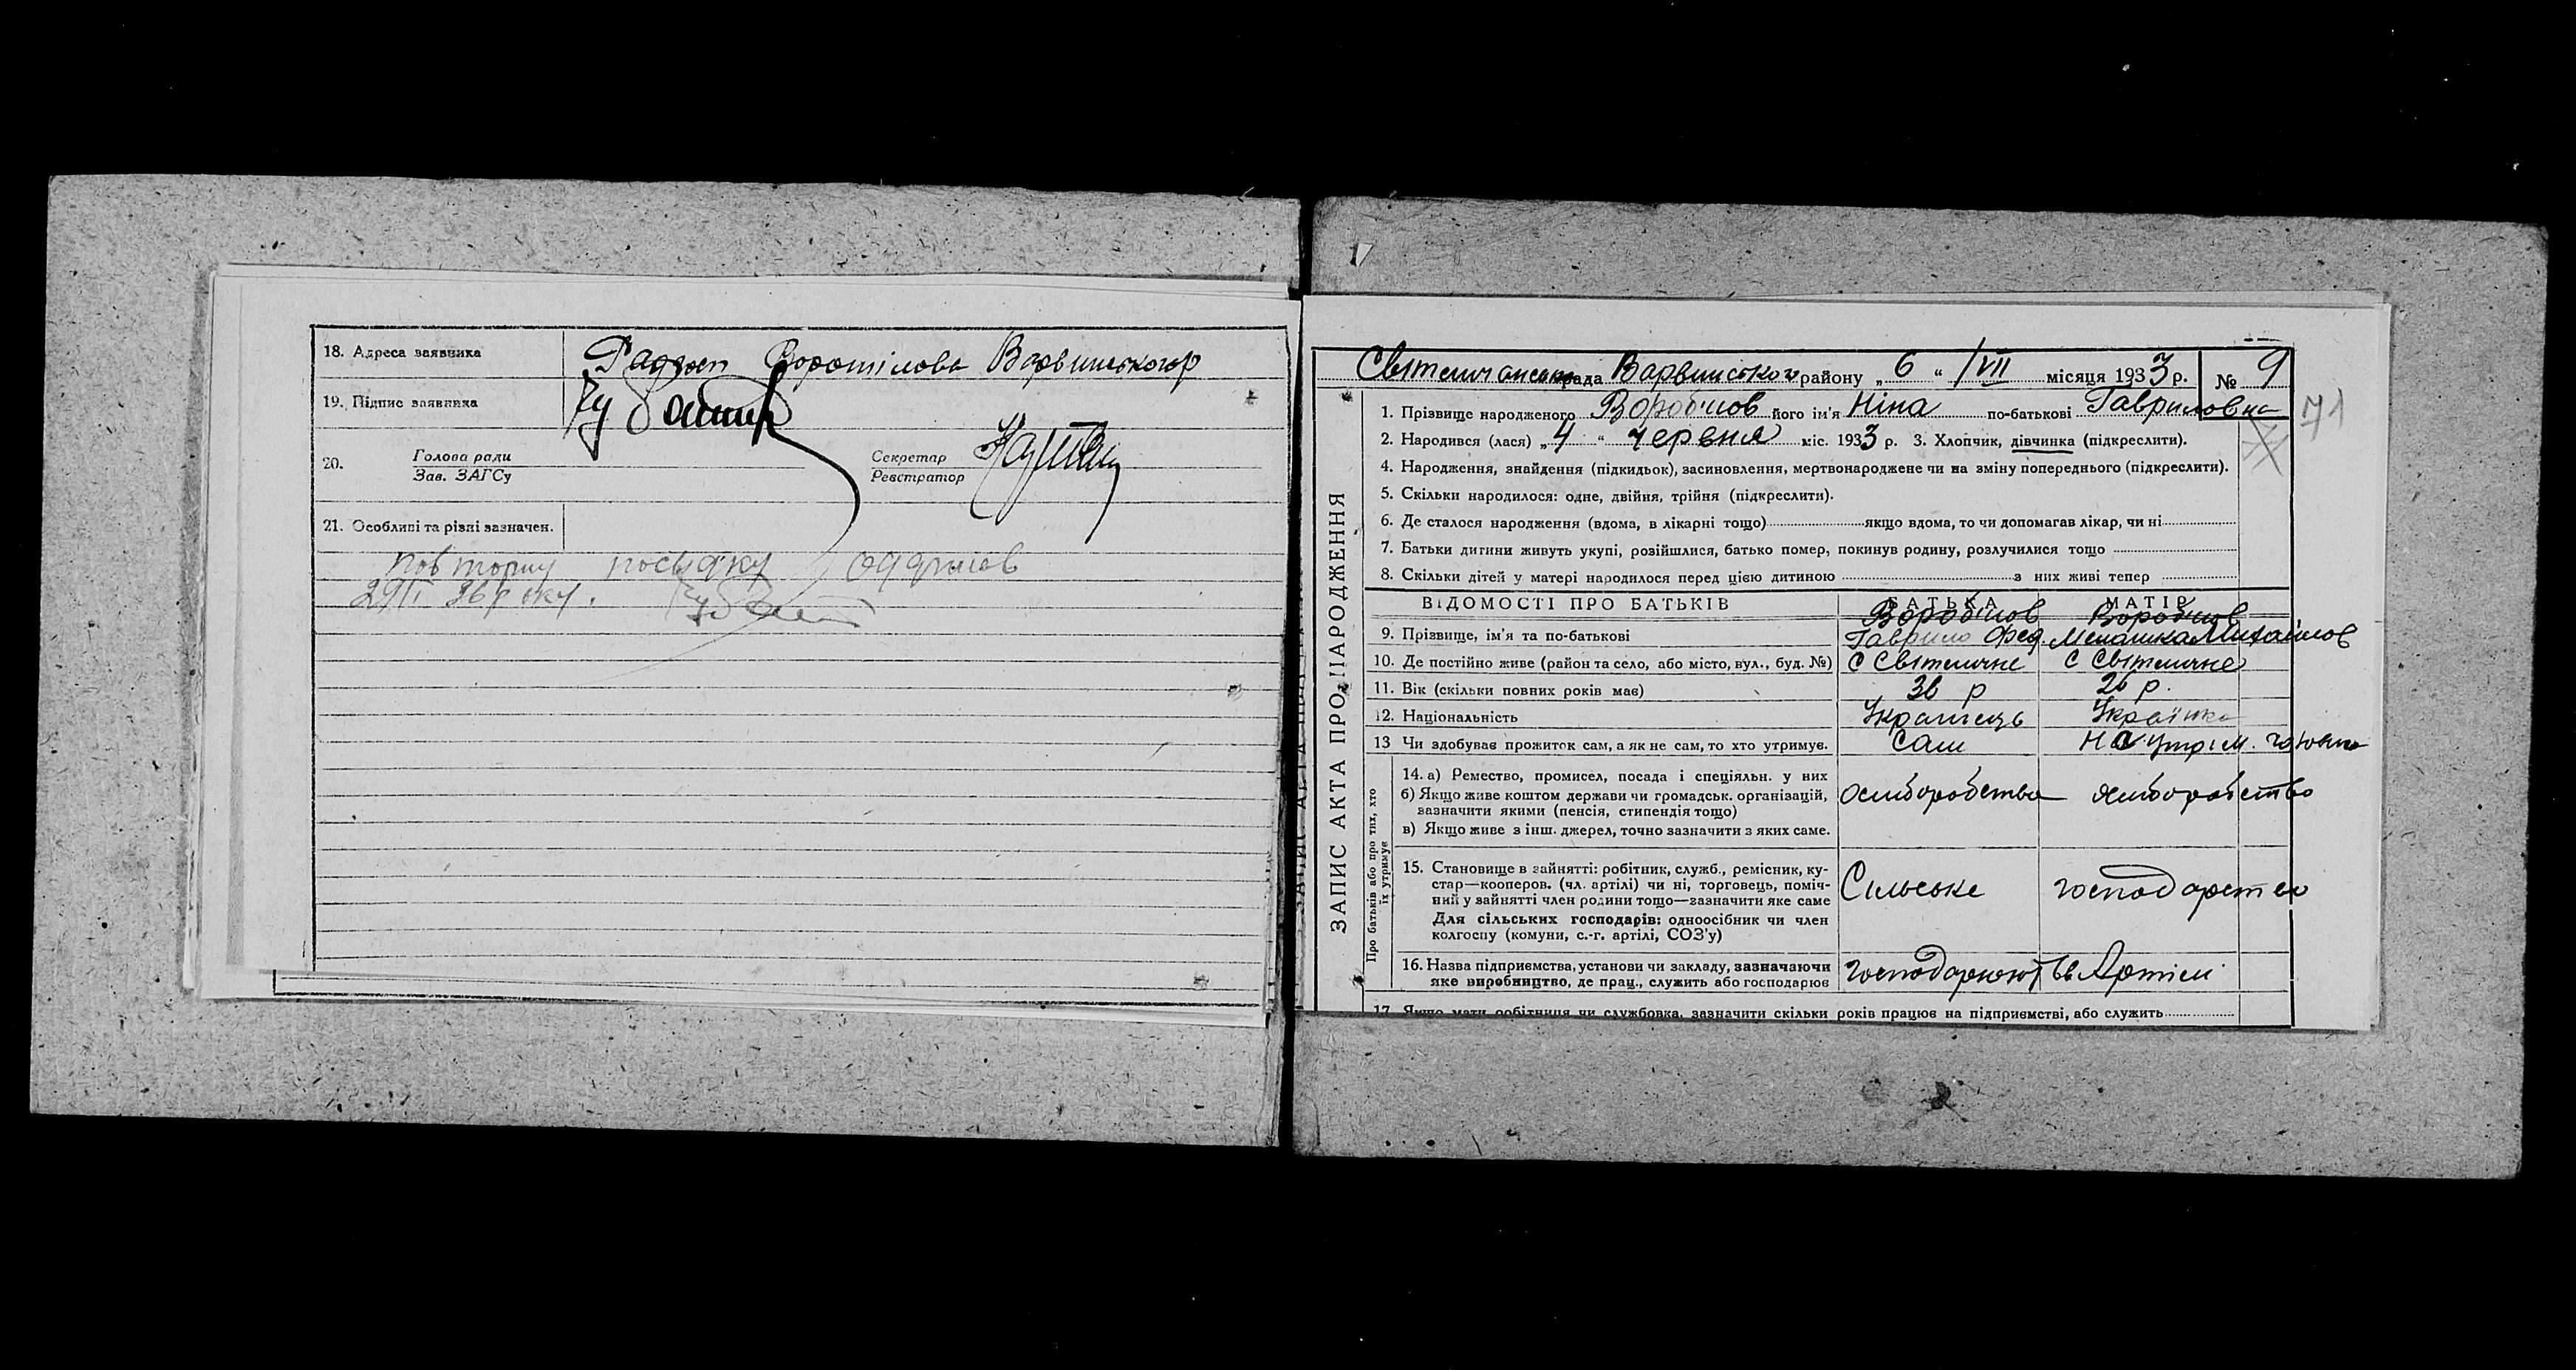 18. Адреса заявника Радгосп Воротілова Варвинського р
19. Підпис заявника
20. Голова ради
Зав. ЗАГСу
Секретар
Реєстратор
21. Особливі та різні зазначен.
Повторну посвідку одержав
ЗАПИС АКТА ПРО НАРОДЖЕННЯ
рада Варвинського району „ 6 “ /VII місяця 1933 р. № 9
71
1. Прізвище народженого Воробйов його ім'я Ніна по-батькові Гавриловна
2. Народився (лася) „ 4 “ червня міс. 1933 р. 3. Хлопчик, дівчинка (підкреслити).
4. Народження, знайдення (підкидьок), засиновлення, мертвонароджене чи на зміну попереднього (підкреслити).
5. Скільки народилося: одне, двійня, трійня (підкреслити).
6. Де сталося народження (вдома, в лікарні тощо) якщо вдома, то чи допомагав лікар, чи ні
7. Батьки дитини живуть укупі, розійшлися, батько помер, покинув родину, розлучилися тощо
8. Скільки дітей у матері народилося перед цією дитиною з них живі тепер
ВІДОМОСТІ ПРО БАТЬКІВ БАТЬКА МАТІР
Воробйов Воробйов
9. Прізвище, ім'я та по-батькові Гаврило Фед. Мелашка Михайлов
10. Де постійно живе (район та село, або місто, вул., буд. №) с Світличне с Світличне
11. Вік (скільки повних років має) 36 р 26 р.
12. Національність Українець Українка
13 Чи здобуває прожиток сам, а як не сам, то хто утримує. Сам На утрим.
Про батьків або про тих, хто
їх утримує
14. а) Ремество, промисел, посада і спеціяльн. у них
б) Якщо живе коштом держави чи громадськ. організацій,
зазначити якими (пенсія, стипендія тощо)
в) Якщо живе з інш. джерел, точно зазначити з яких саме.
15. Становище в зайнятті: робітник, служб., ремісник, ку-
стар—кооперов. (чл. артілі) чи ні, торговець, поміч-
ний у зайнятті член родини тощо—зазначити яке саме
Сільське господарство
Для сільських господарів: одноосібник чи член
колгоспу (комуни, с.-г. артілі, СОЗ'у)
16. Назва підприємства, установи чи закладу, зазначаючи
яке виробництво, де прац., служить або господарює
господарюють в Артілі
17. Якщо мати робітниця чи службовка, зазначити скільки років працює на підприємстві, або служить